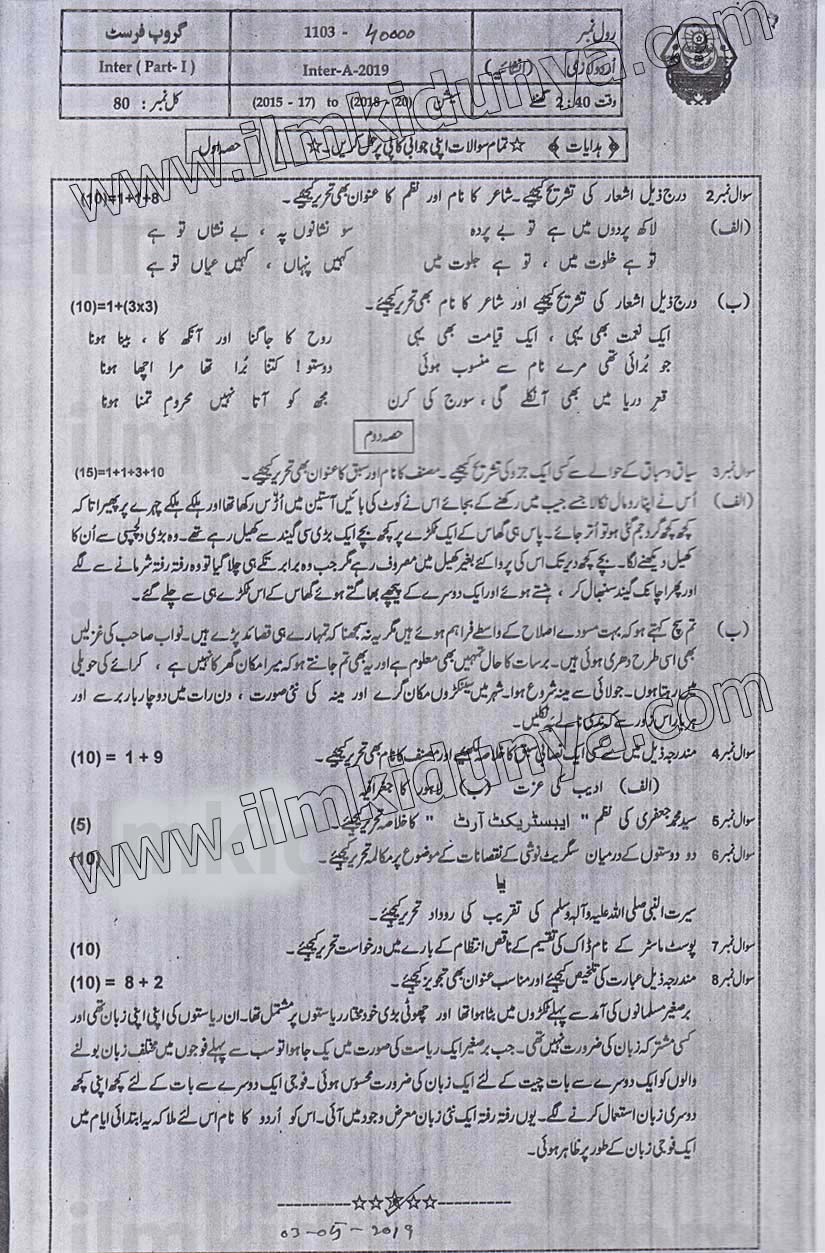 رول نمبر 1103 - 40000 گروپ فرسٹ
اُردو لازمی (انشائیہ) Inter-A-2019 Inter ( Part- I )
وقت 2:40 گھنٹے سیشن (2015 - 17) to (2018 - 20) کل نمبر : 80
﴿ ہدایات ﴾ ☆ تمام سوالات اپنی جوابی کاپی پر حل کریں۔ ☆ حصہ اول
سوال نمبر 2 درج ذیل اشعار کی تشریح کیجیے۔ شاعر کا نام اور نظم کا عنوان بھی تحریر کیجیے ۔ (10)=1+1+8
(الف) لاکھ پردوں میں ہے تو بے پردہ سو نشانوں پہ ، بے نشاں تو ہے
تو ہے خلوت میں ، تو ہے جلوت میں کہیں پنہاں ، کہیں عیاں تو ہے
(ب) درج ذیل اشعار کی تشریح کیجیے اور شاعر کا نام بھی تحریر کیجئے ۔ (10)=1+(3x3)
ایک نعمت بھی یہی ، ایک قیامت بھی یہی روح کا جاگنا اور آنکھ کا ، بینا ہونا
جو بُرائی تھی مرے نام سے منسوب ہوئی دوستو! کتنا بُرا تھا مرا اچھا ہونا
قعرِ دریا میں بھی آ نکلے گی ، سورج کی کرن مجھ کو آتا نہیں محرومِ تمنا ہونا
حصہ دوم
سوال نمبر 3 سیاق و سباق کے حوالے سے کسی ایک جزو کی تشریح کیجیے ۔ مصنف کا نام اور سبق کا عنوان بھی تحریر کیجیے ۔ (15)=1+1+3+10
(الف) اُس نے اپنا رومال نکالا جسے جیب میں رکھنے کے بجائے اس نے کوٹ کی بائیں آستین میں اُڑس رکھا تھا اور ہلکے ہلکے چہرے پر پھیرا تا کہ
کچھ کچھ گرد جم گئی ہو تو اُتر جائے۔ پاس ہی گھاس کے ایک ٹکڑے پر کچھ بچے ایک بڑی سی گیند سے کھیل رہے تھے۔ وہ بڑی دلچسپی سے اُن کا
کھیل دیکھنے لگا۔ بچے کچھ دیر تک اس کی پروا کئے بغیر کھیل میں مصروف رہے مگر جب وہ برابر تکے ہی چلا گیا تو وہ رفتہ رفتہ شرمانے سے لگے
اور پھر اچانک گیند سنبھال کر ، ہنستے ہوئے اور ایک دوسرے کے پیچھے بھاگتے ہوئے گھاس کے اس ٹکڑے ہی سے چلے گئے۔
(ب) تم سچ کہتے ہو کہ بہت مسودے اصلاح کے واسطے فراہم ہوئے ہیں مگر یہ نہ سمجھنا کہ تمہارے ہی قصائد پڑے ہیں۔ نواب صاحب کی غزلیں
بھی اسی طرح دھری ہوئی ہیں۔ برسات کا حال تمہیں بھی معلوم ہے اور یہ بھی تم جانتے ہو کہ میرا مکان گھر کا نہیں ہے ، کرائے کی حویلی
میں رہتا ہوں۔ جولائی سے مینہ شروع ہوا۔ شہر میں سینکڑوں مکان گرے اور مینہ کی نئی صورت ، دن رات میں دو چار بار برسے اور
ہر بار اس زور سے کہ ندی نالے بہ نکلیں۔
سوال نمبر 4 مندرجہ ذیل میں سے کسی ایک نصابی سبق کا خلاصہ لکھیے اور مصنف کا نام بھی تحریر کیجیے ۔ (10) = 1 + 9
(الف) ادیب کی عزت (ب) لاہور کا جغرافیہ
سوال نمبر 5 سید محمد جعفری کی نظم " ایبسٹریکٹ آرٹ " کا خلاصہ تحریر کیجیئے۔ (5)
سوال نمبر 6 دو دوستوں کے درمیان سگریٹ نوشی کے نقصانات کے موضوع پر مکالمہ تحریر کیجیئے ۔ (10)
یا
سیرت النبی صلی اللہ علیہ وآلہ وسلم کی تقریب کی روداد تحریر کیجیئے ۔
سوال نمبر 7 پوسٹ ماسٹر کے نام ڈاک کی تقسیم کے ناقص انتظام کے بارے میں درخواست تحریر کیجیئے ۔ (10)
سوال نمبر 8 مندرجہ ذیل عبارت کی تلخیص کیجیئے اور مناسب عنوان بھی تجویز کیجیئے ۔ (10) = 8 + 2
برصغیر مسلمانوں کی آمد سے پہلے ٹکڑوں میں بٹا ہوا تھا اور چھوٹی بڑی خود مختار ریاستوں پر مشتمل تھا۔ ان ریاستوں کی اپنی اپنی زبان تھی اور
کسی مشترکہ زبان کی ضرورت نہیں تھی۔ جب برصغیر ایک ریاست کی صورت میں یک جا ہوا تو سب سے پہلے فوجوں میں مختلف زبان بولنے
والوں کو ایک دوسرے سے بات چیت کے لئے ایک زبان کی ضرورت محسوس ہوئی۔ فوجی ایک دوسرے سے بات کے لئے کچھ اپنی کچھ
دوسری زبان استعمال کرنے لگے۔ یوں رفتہ رفتہ ایک نئی زبان معرض وجود میں آئی۔ اس کو اُردو کا نام اس لئے ملا کہ یہ ابتدائی ایام میں
ایک فوجی زبان کے طور پر ظاہر ہوئی۔
03-05-2019
www.ilmkidunya.com
www.ilmkidunya.com
ilmkidunya.com